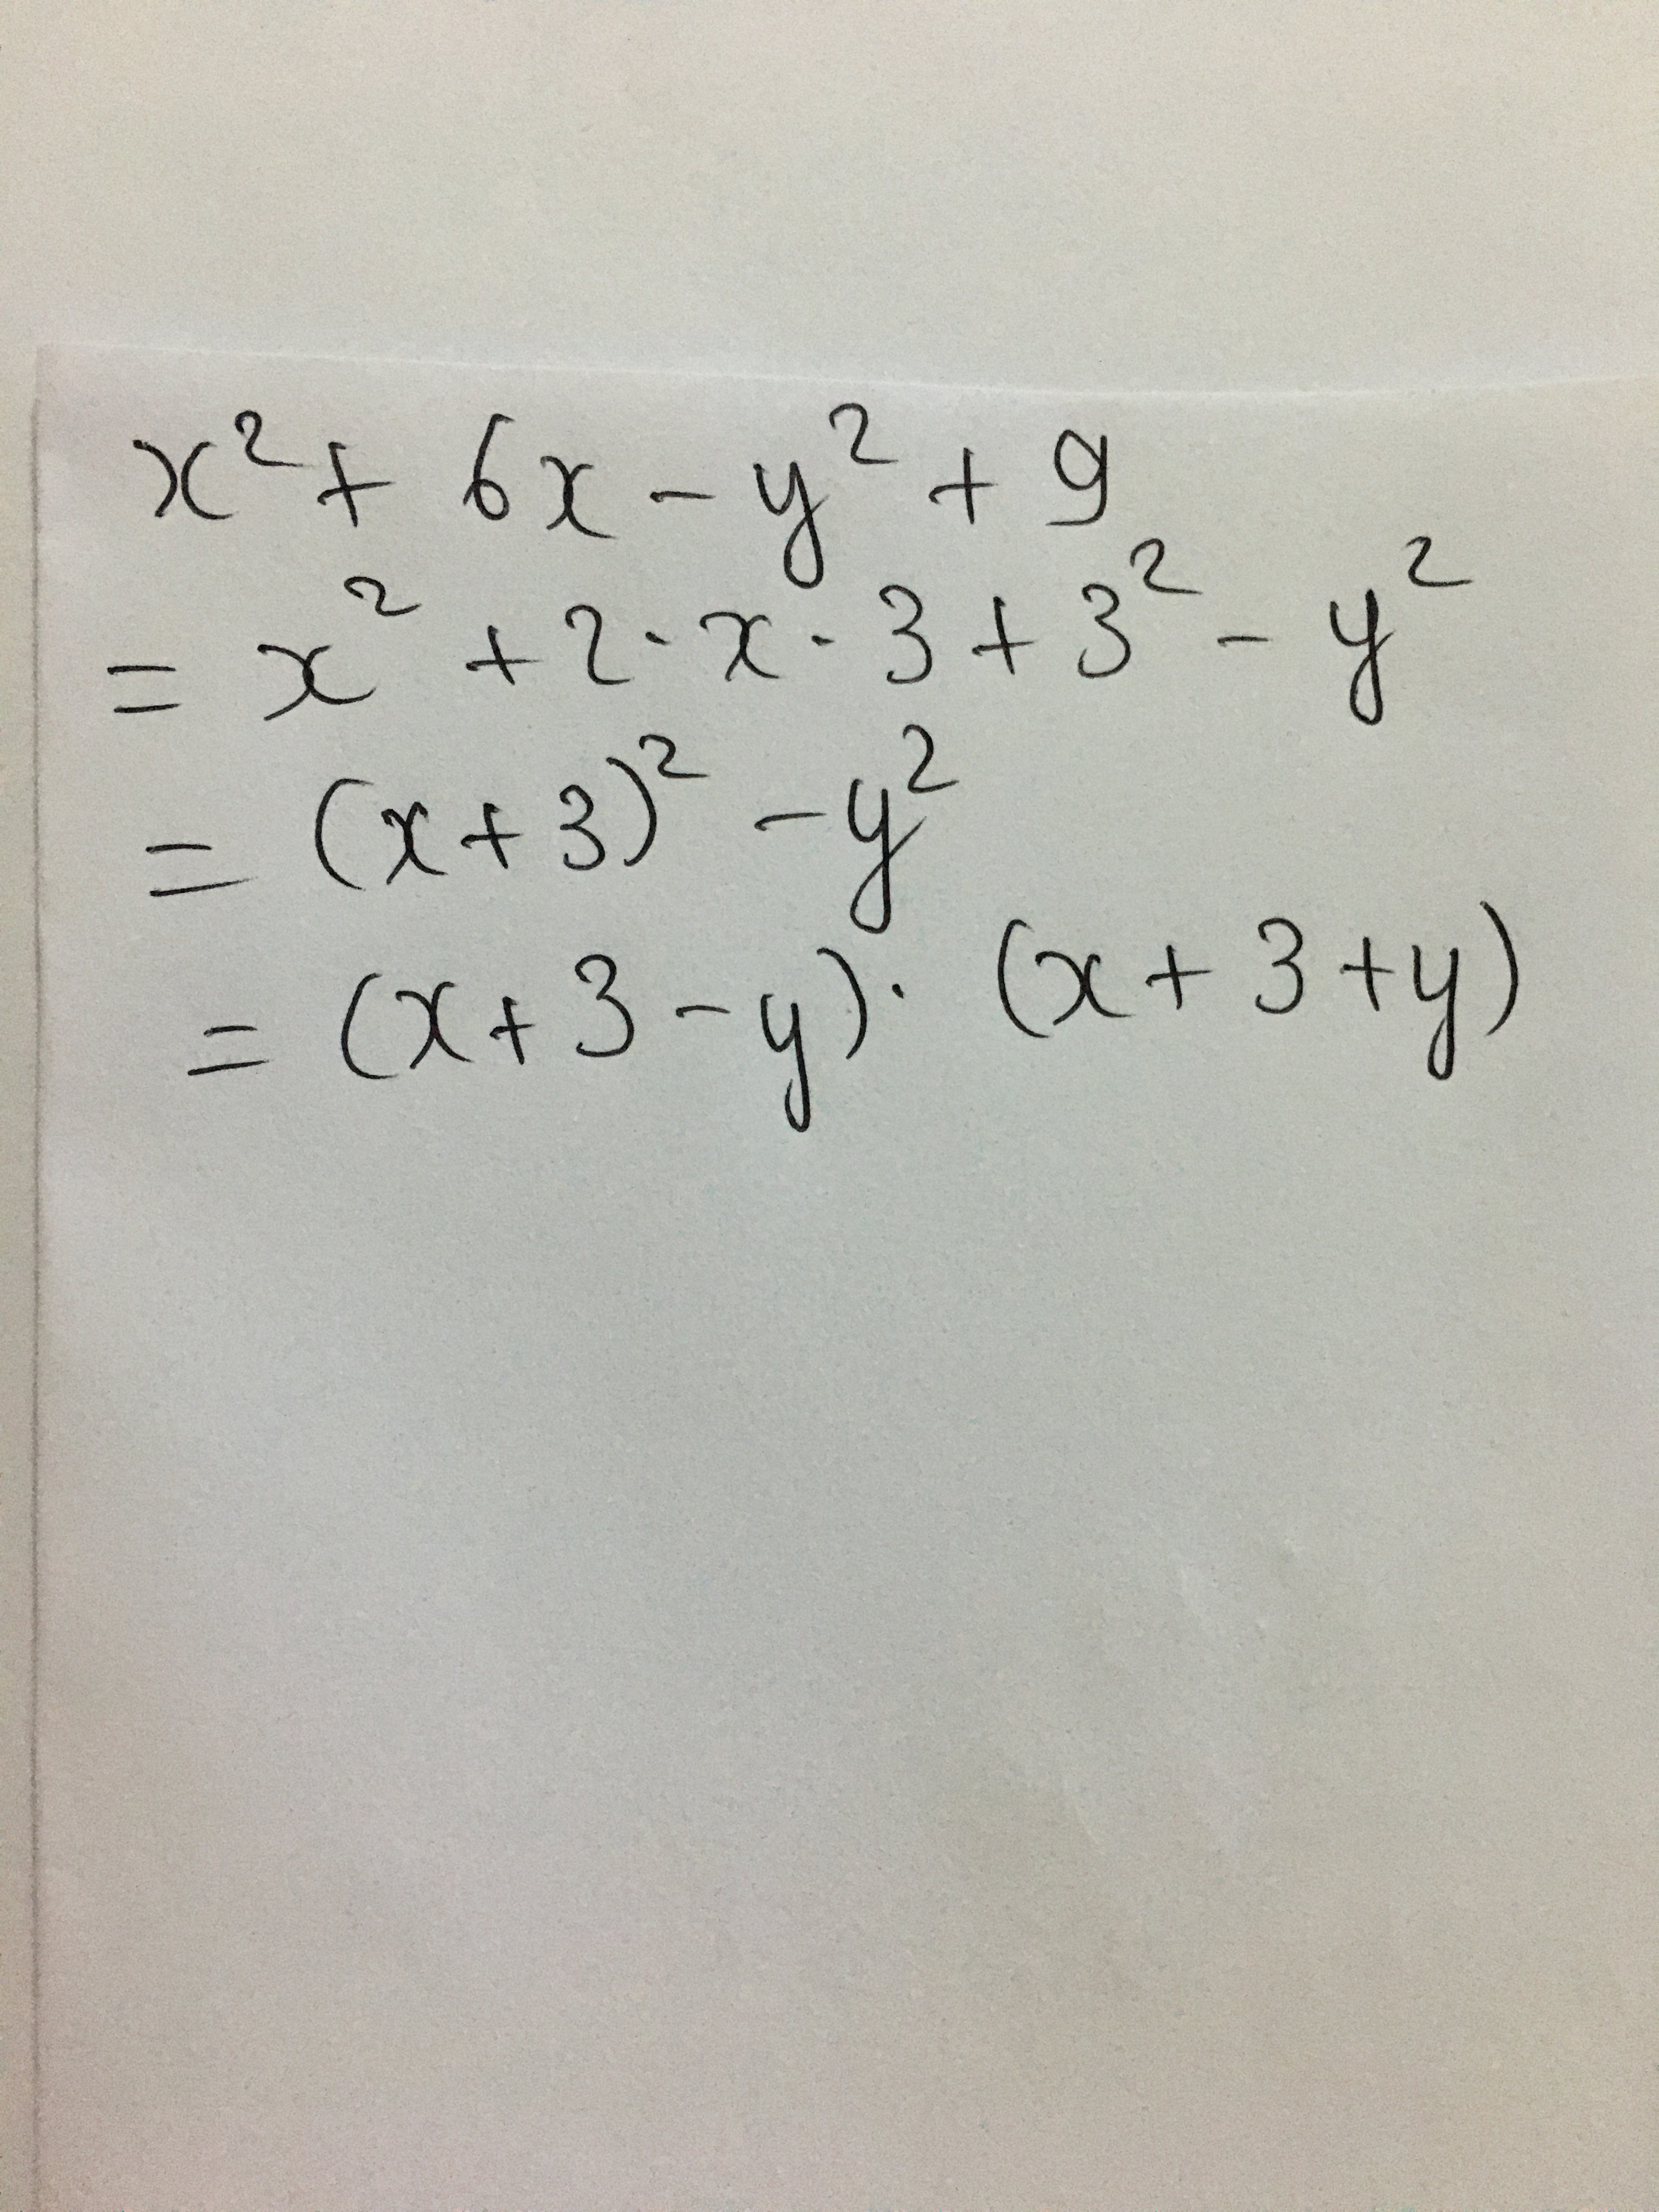 x² + 6x - y² + 9
= x² + 2 · x · 3 + 3² - y²
= (x + 3)² - y²
= (x + 3 - y) · (x + 3 + y)